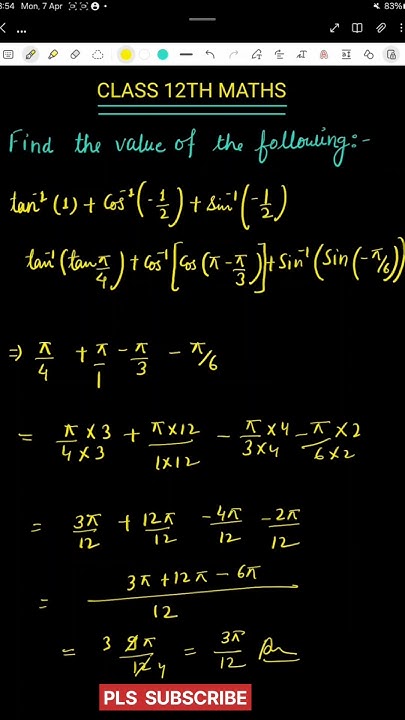 8:54 Mon, 7 Apr 83%
CLASS 12TH MATHS
Find the value of the following:-
tan⁻¹(1) + Cos⁻¹(-1/2) + Sin⁻¹(-1/2)
tan⁻¹(tan π/4) + Cos⁻¹[Cos(π - π/3)] + Sin⁻¹(Sin(-π/6))
⇒ π/4 + π/1 - π/3 - π/6
= π×3/4×3 + π×12/1×12 - π×4/3×4 - π×2/6×2
= 3π/12 + 12π/12 - 4π/12 - 2π/12
= 3π + 12π - 6π/12
= 3 9π/12 4 = 3π/12 Ans
PLS SUBSCRIBE